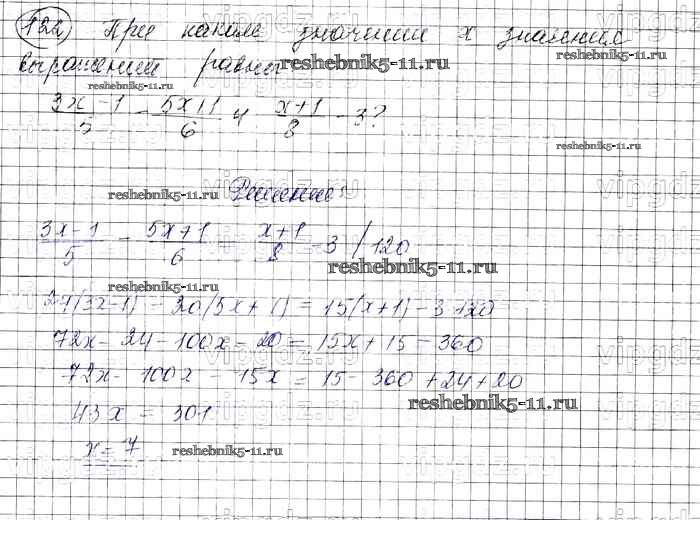 122 При каком значении x значения
выражений равны reshebnik5-11.ru
reshebnik5-11.ru
(3x-1)/5 - (5x+1)/6 и (x+1)/8 - 3?
reshebnik5-11.ru
reshebnik5-11.ru Решение
(3x-1)/5 - (5x+1)/6 = (x+1)/8 - 3 / 120
reshebnik5-11.ru
24(3x-1) - 20(5x+1) = 15(x+1) - 3·120
72x - 24 - 100x - 20 = 15x + 15 - 360
72x - 100x - 15x = 15 - 360 + 24 + 20
reshebnik5-11.ru
43x = 301
x = 7 reshebnik5-11.ru
vipgdz.ru